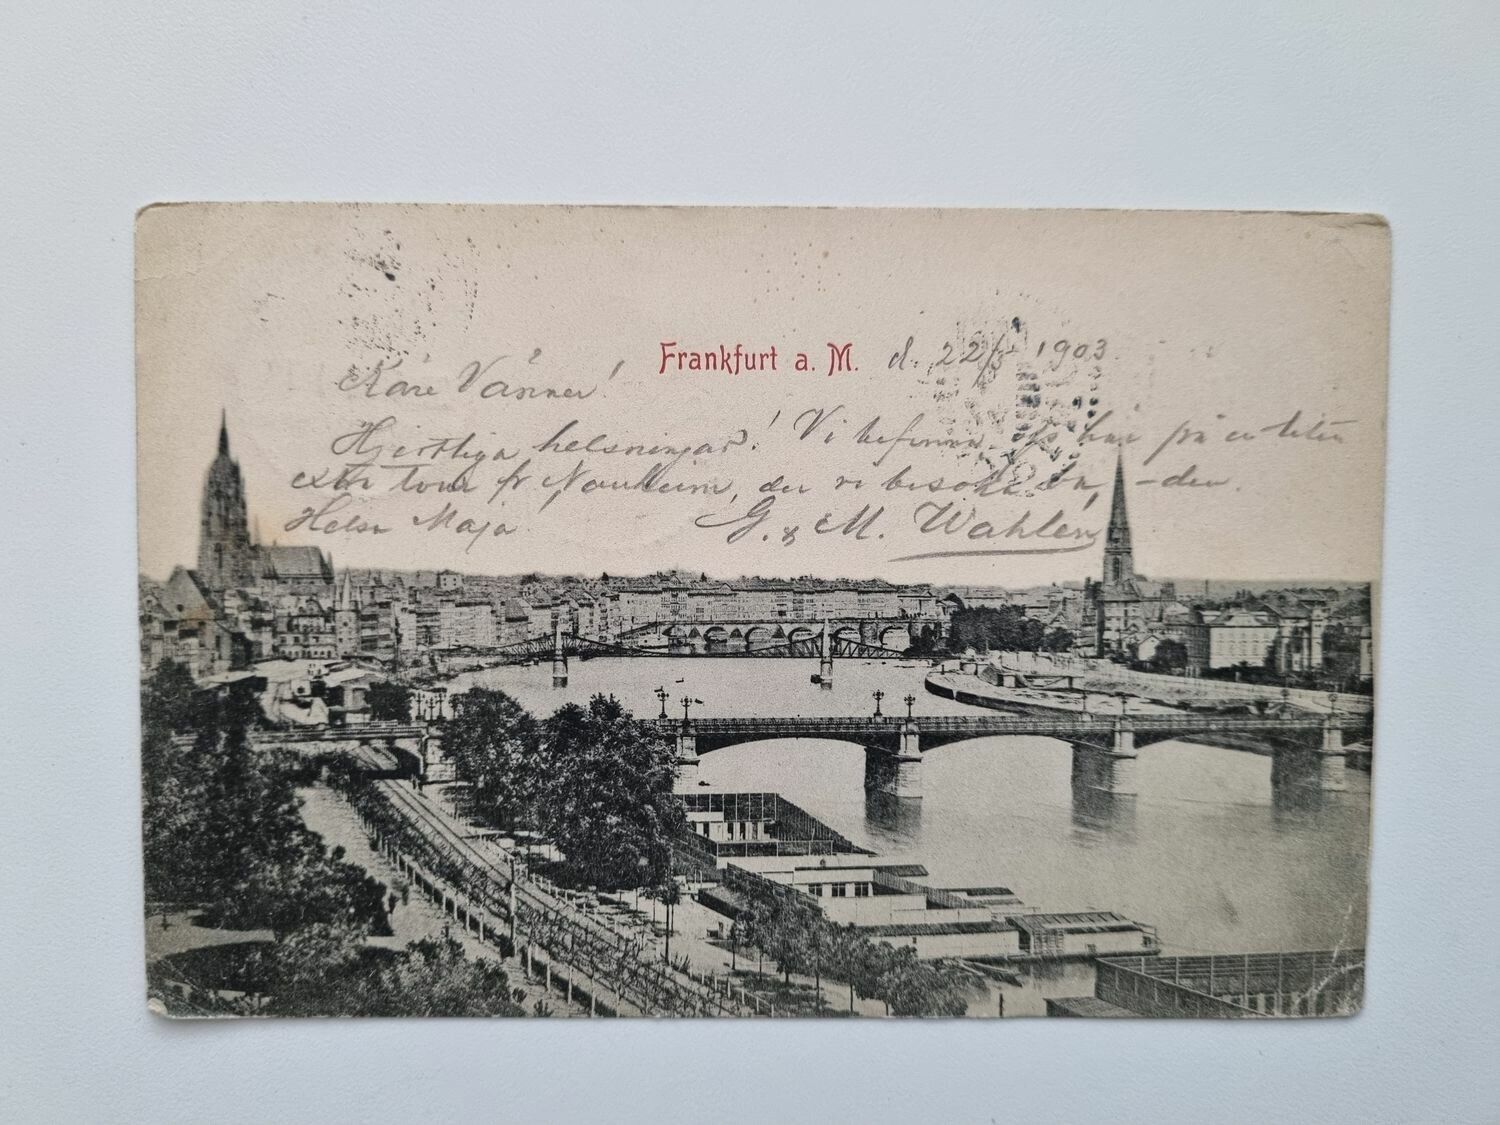 Frankfurt a. M. d. 22/5 1903.
Käre Vänner!
Hjertliga helsningar! Vi befinna oss här på en liten
extra tour fr Nauheim, der vi besöka ba, -den.
Helsa Maja! G. & M. Wahlén